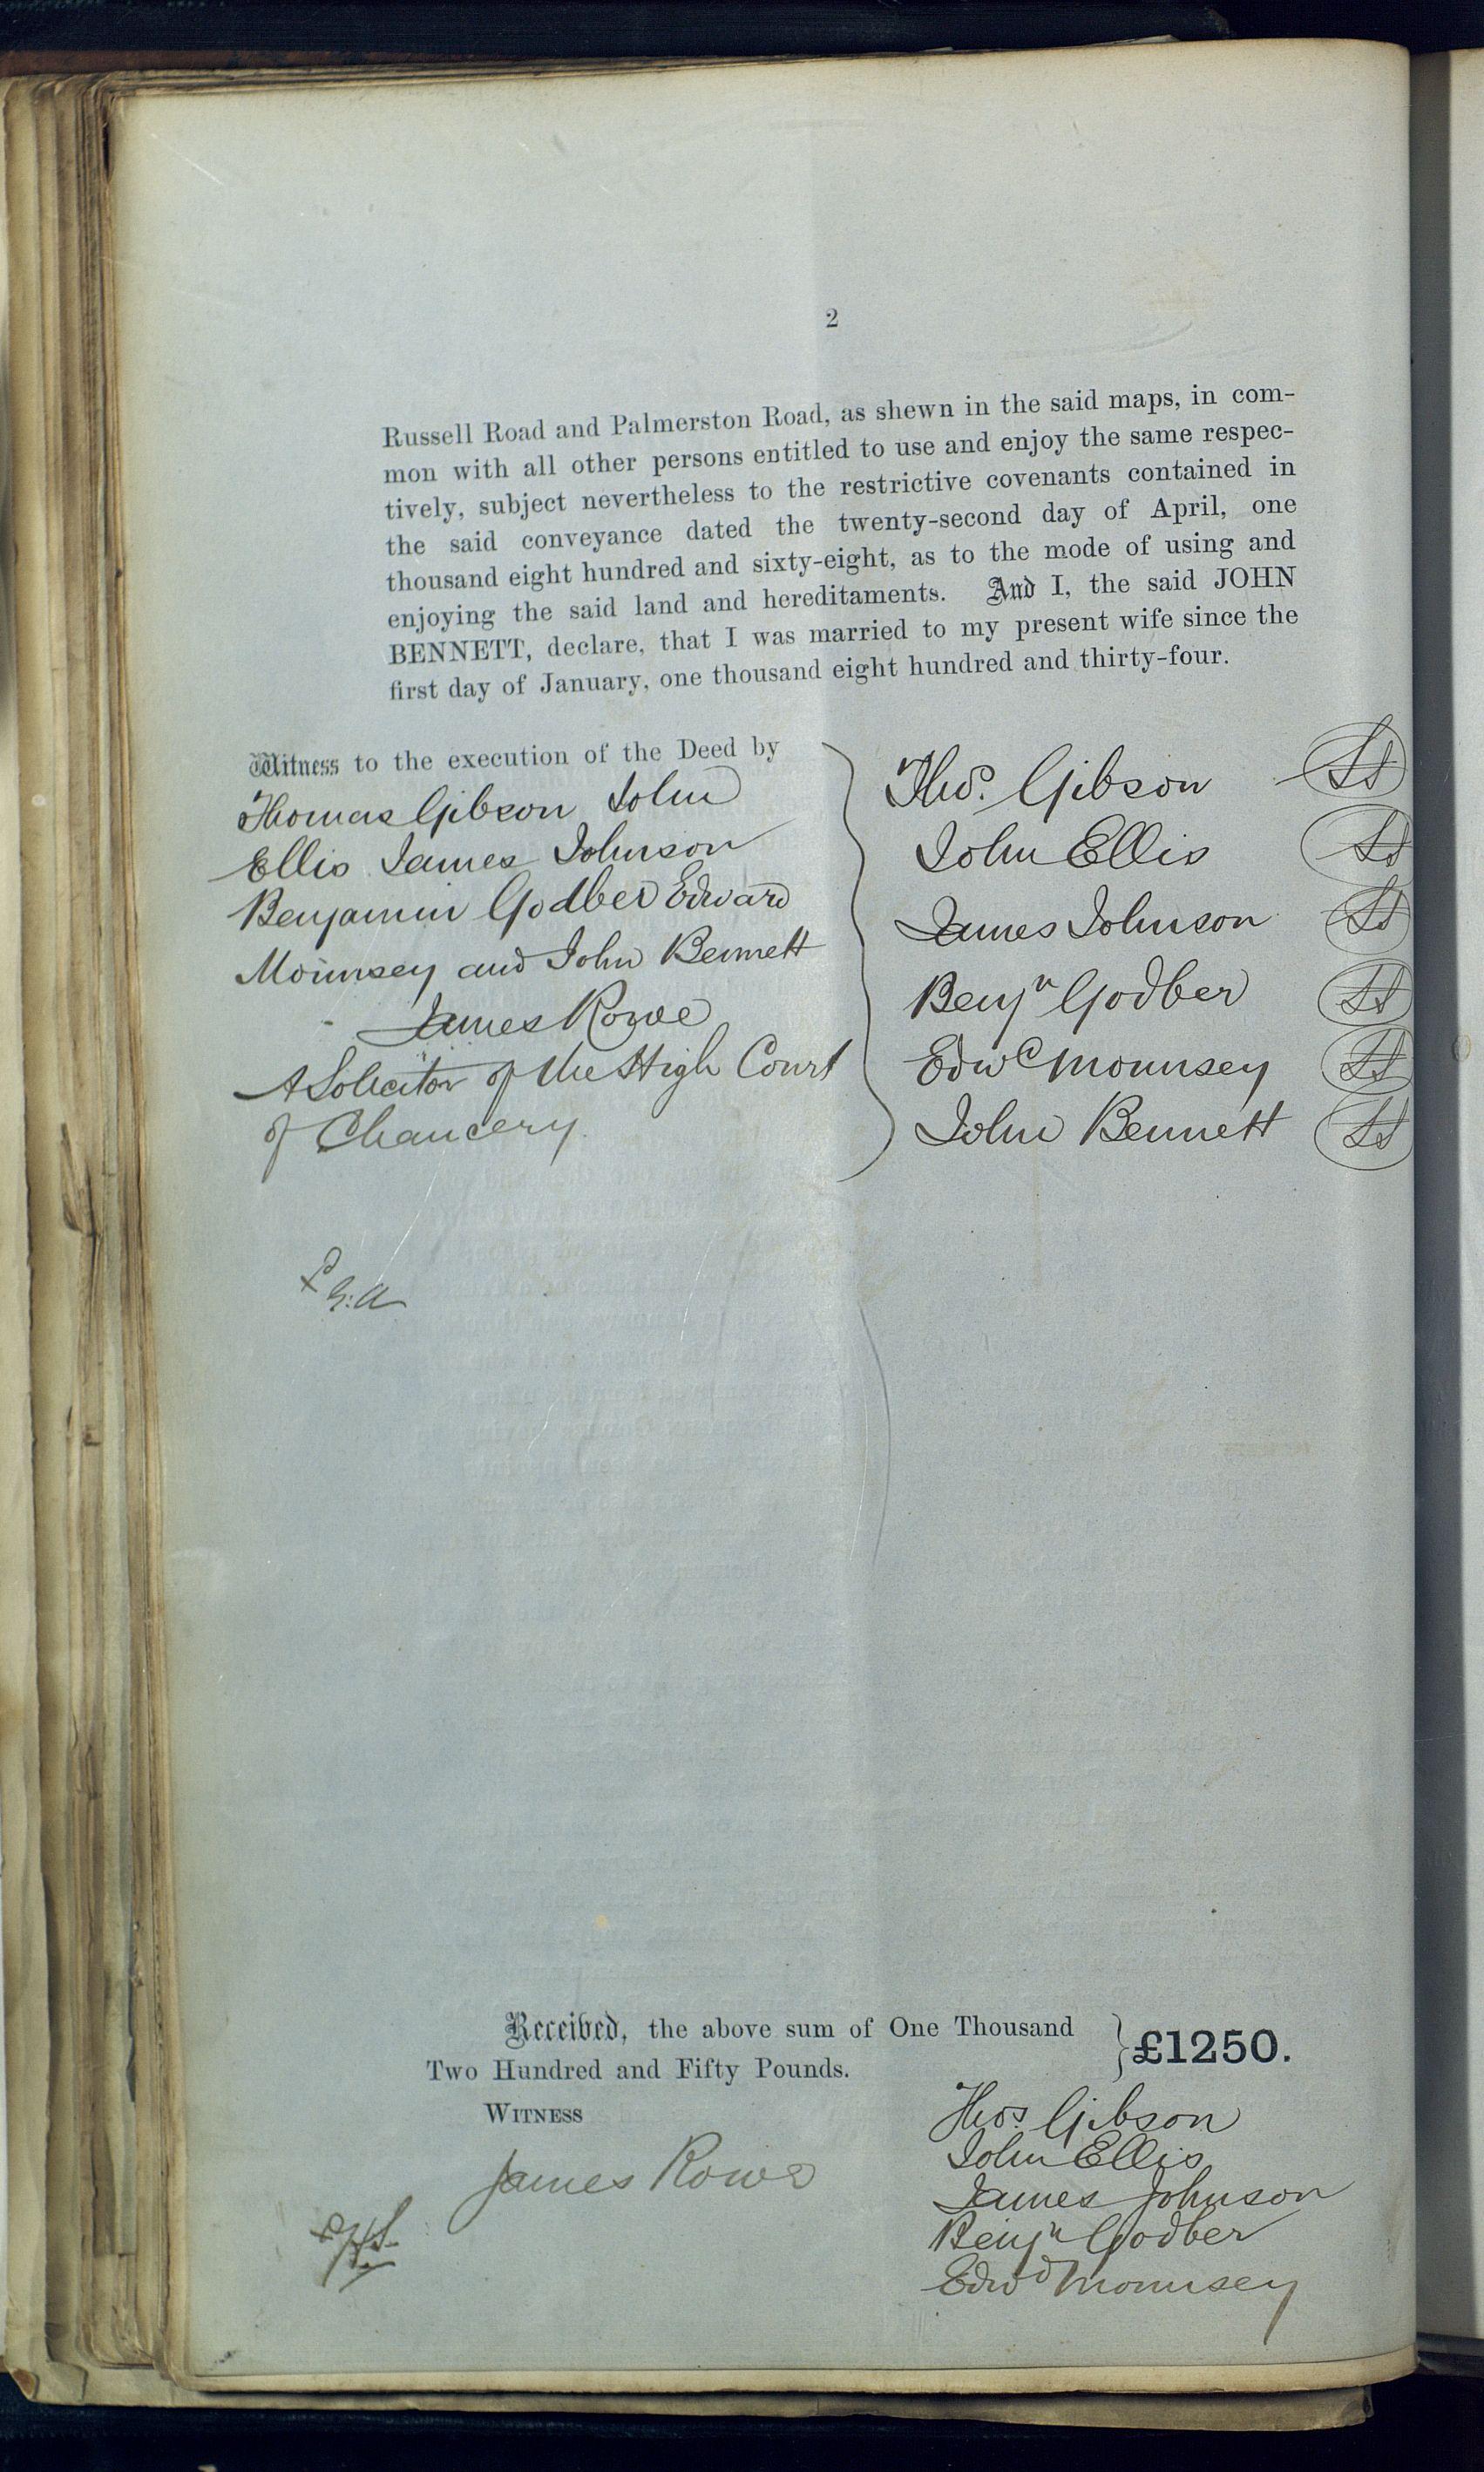 2
Russell Road and Palmerston Road, as shewn in the said maps, in com-
mon with all other persons entitled to use and enjoy the same respec-
tively, subject nevertheless to the restrictive covenants contained in
the said conveyance dated the twenty-second day of April, one
thousand eight hundred and sixty-eight, as to the mode of using and
enjoying the said land and hereditaments. And I, the said JOHN
BENNETT, declare, that I was married to my present wife since the
first day of January, one thousand eight hundred and thirty-four.
Witness to the execution of the Deed by
Thomas Gibson John
Ellis James Johnson
Benjamin Godber Edward
Mounsey and John Bennett
James Rowe
A Solicitor of the High Court
of Chancery
Thos. Gibson LS
John Ellis LS
James Johnson LS
Benjn Godber LS
Edwd Mounsey LS
John Bennett LS
Received, the above sum of One Thousand
Two Hundred and Fifty Pounds.
£1250.
WITNESS
James Rowe
Thos. Gibson
John Ellis
James Johnson
Benjn Godber
Edwd Mounsey